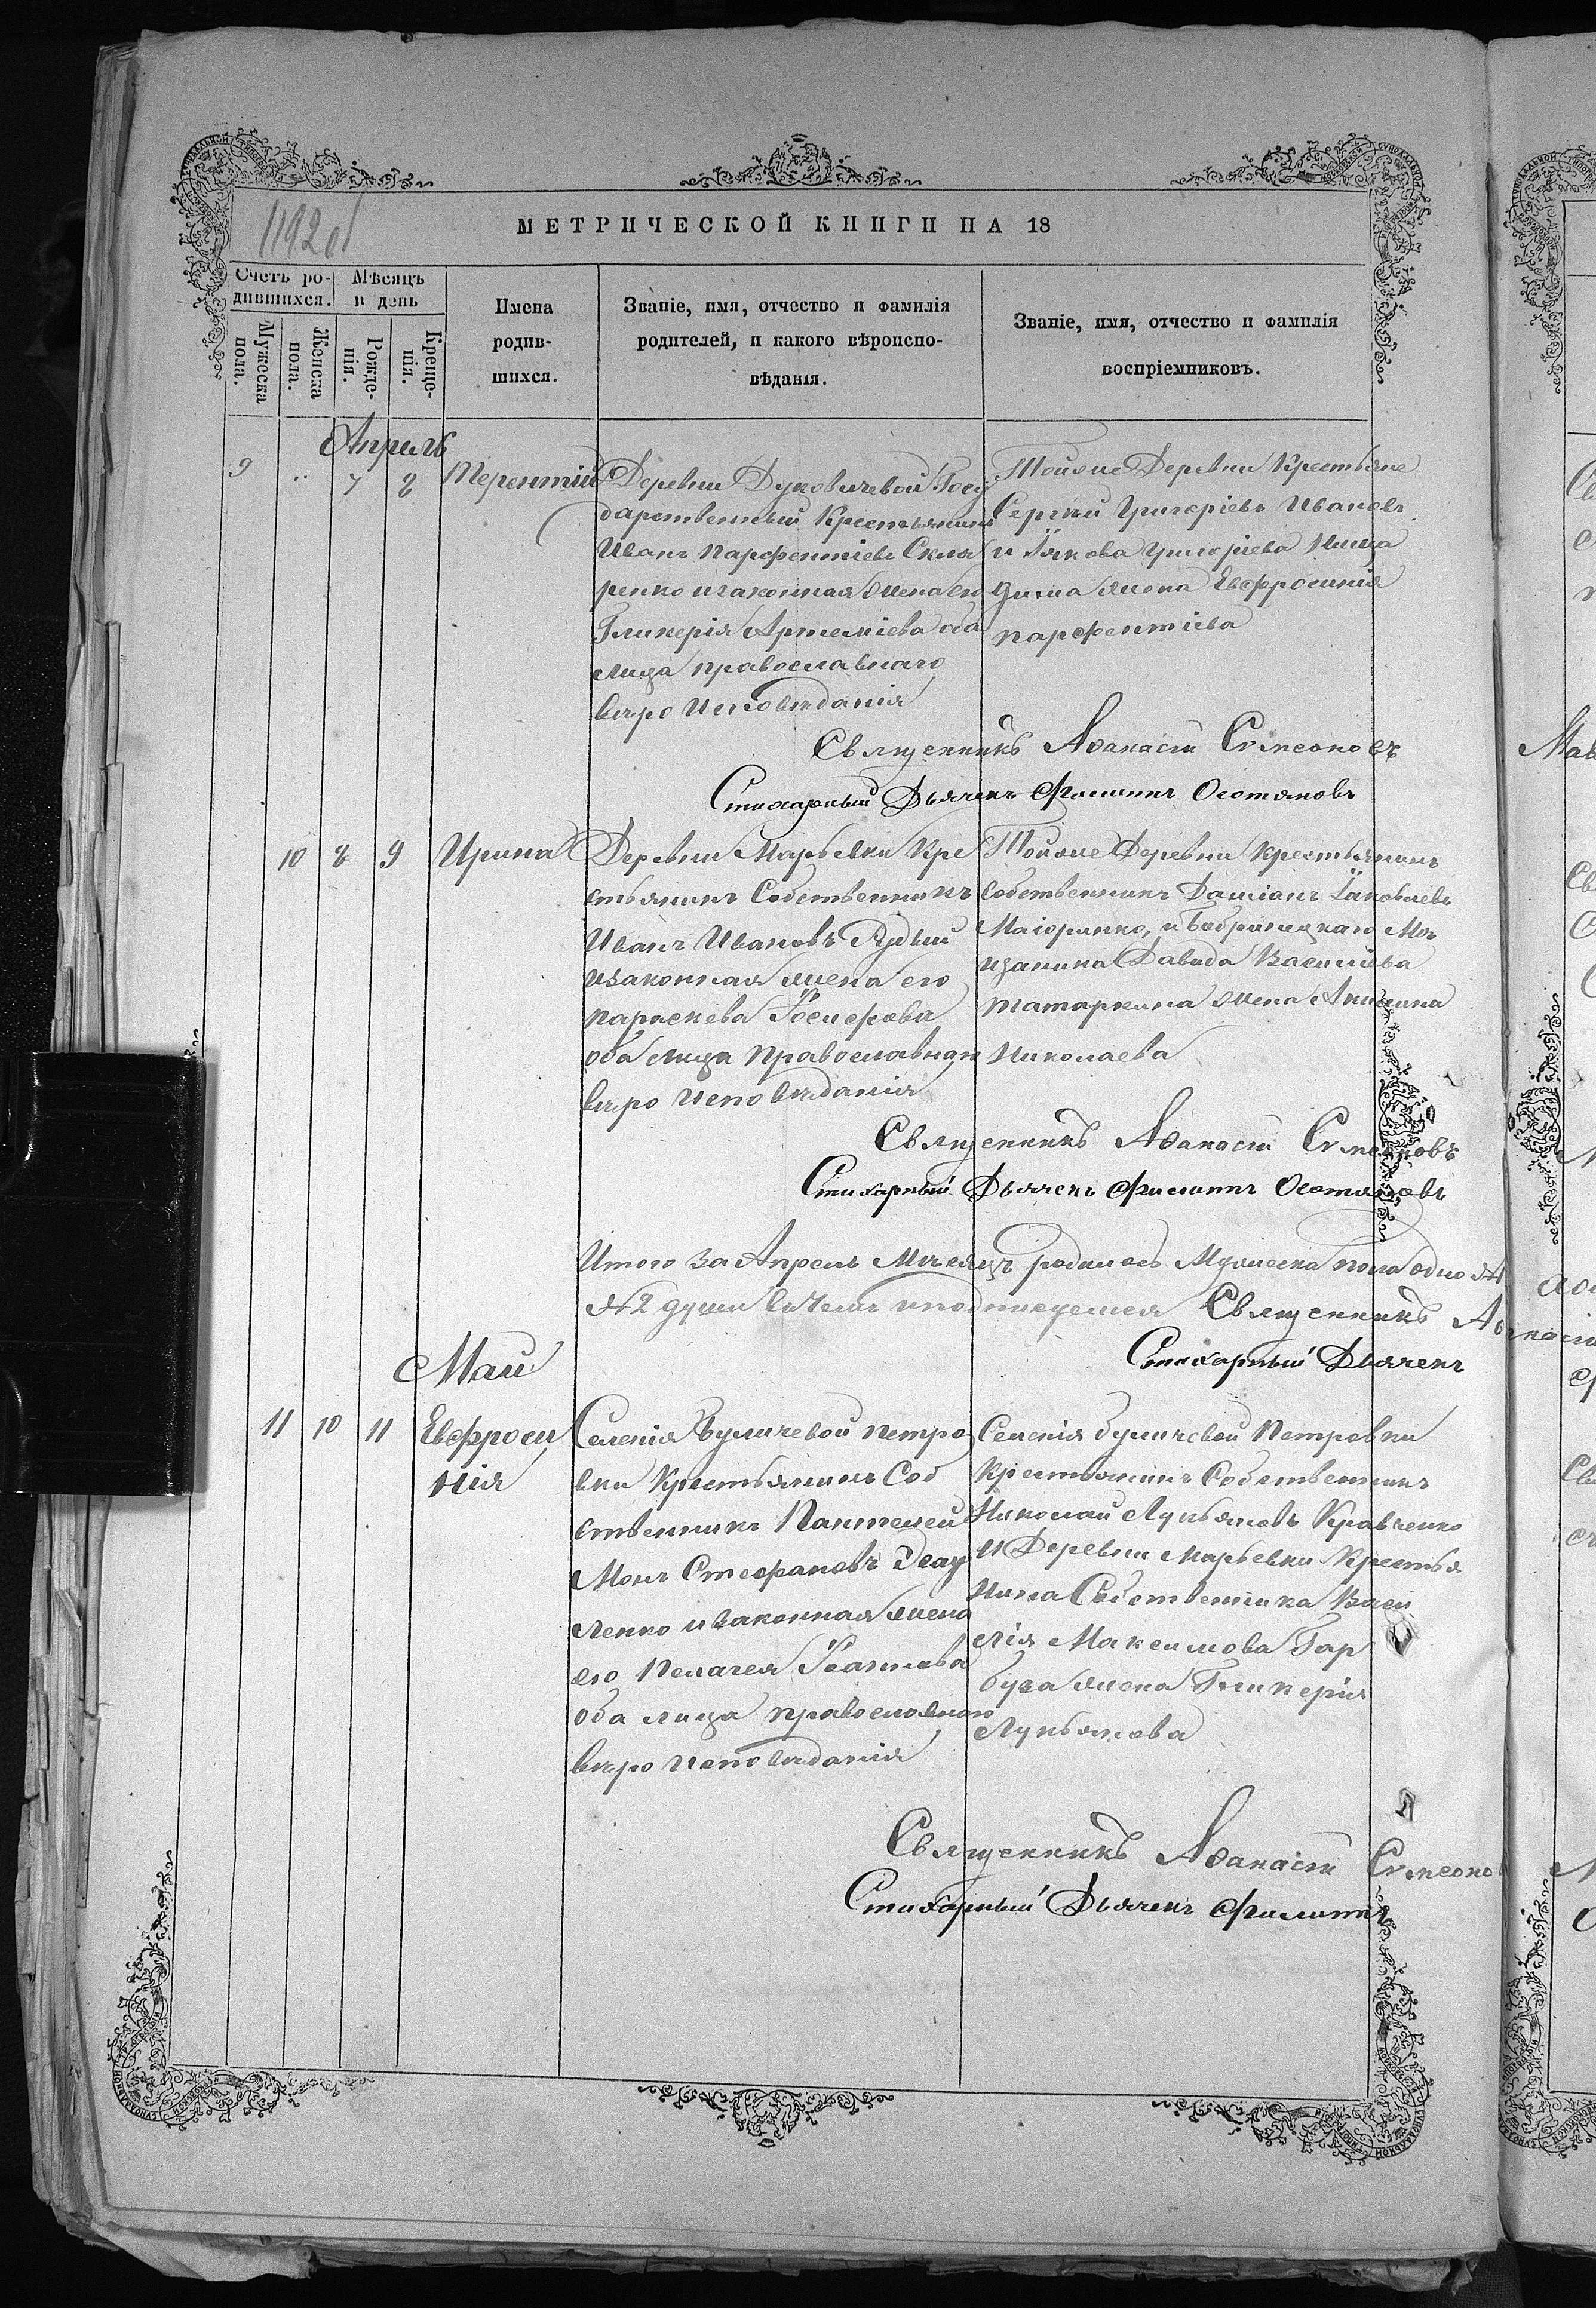 1192об
МЕТРИЧЕСКОЙ КНИГИ НА 18
Счетъ ро-
дившихся.
Мѣсяцъ
и день
Мужеска
пола.
Женска
пола.
Рожде-
нія.
Креще-
нія.
Имена
родив-
шихся.
Званіе, имя, отчество и фамилія
родителей, и какого вѣроиспо-
вѣданія.
Званіе, имя, отчество и фамилія
воспріемниковъ.
Апрель
9 " 7 8 Терентій
Деревни Дуковичевой Госу
дарственный Крестьянинъ
Иванъ Парфентіевъ Скля
ренко и законная жена его
Гликерія Артеміева оба
лица православнаго
вѣро исповѣданія
Тойже Деревни Крестьяне
Сергѣй Григоріевъ Ивановъ
и Іякова Григоріева
жена Евфросинія
Парфентіева
Священникъ Аѳанасій Симеоновъ
Стихарный Дьячекъ Филиппъ
10 8 9 Ирина
Деревни Марьевки Кре
стьянинъ Собственникъ
Иванъ Ивановъ Рудый
изаконная жена его
Параскева Іосифова
оба лица Православнаго
вѣро исповѣданія
Тойже Деревни Крестьянинъ
Собственникъ Даміанъ Іаковлевъ
Маіоренко, и Бобринецкаго Мѣ
щанина Давида Василіева
Татаркина жена
Николаева
Священникъ Аѳанасій Симеоновъ
Стихарный Дьячекъ Филиппъ
Итого за Апрель Мѣсяцъ родилось Мужеска пола одно
№2 души въ чемъ иподписуемся Священникъ Аѳанасій
Стихарный Дьячекъ
Май
11 10 11 Евфроси
нія
Селенія Буличевой Петро
вки Крестьянинъ Соб
ственникъ Пантелей
Монъ Стефановъ
ленко и законная жена
его Пелагея Іоаннова
оба лица православнаго
вѣро исповѣданія
Селенія Буличевой Петровки
Крестьянинъ Собственникъ
Николай Лукьяновъ Кравченко
и Деревни Марьевки Крестья
нина Собственника Васи
лія Максимова Гар
буза жена Гликерія
Лукьянова
Священникъ Аѳанасій Симеоно
Стихарный Дьячекъ Филиппъ